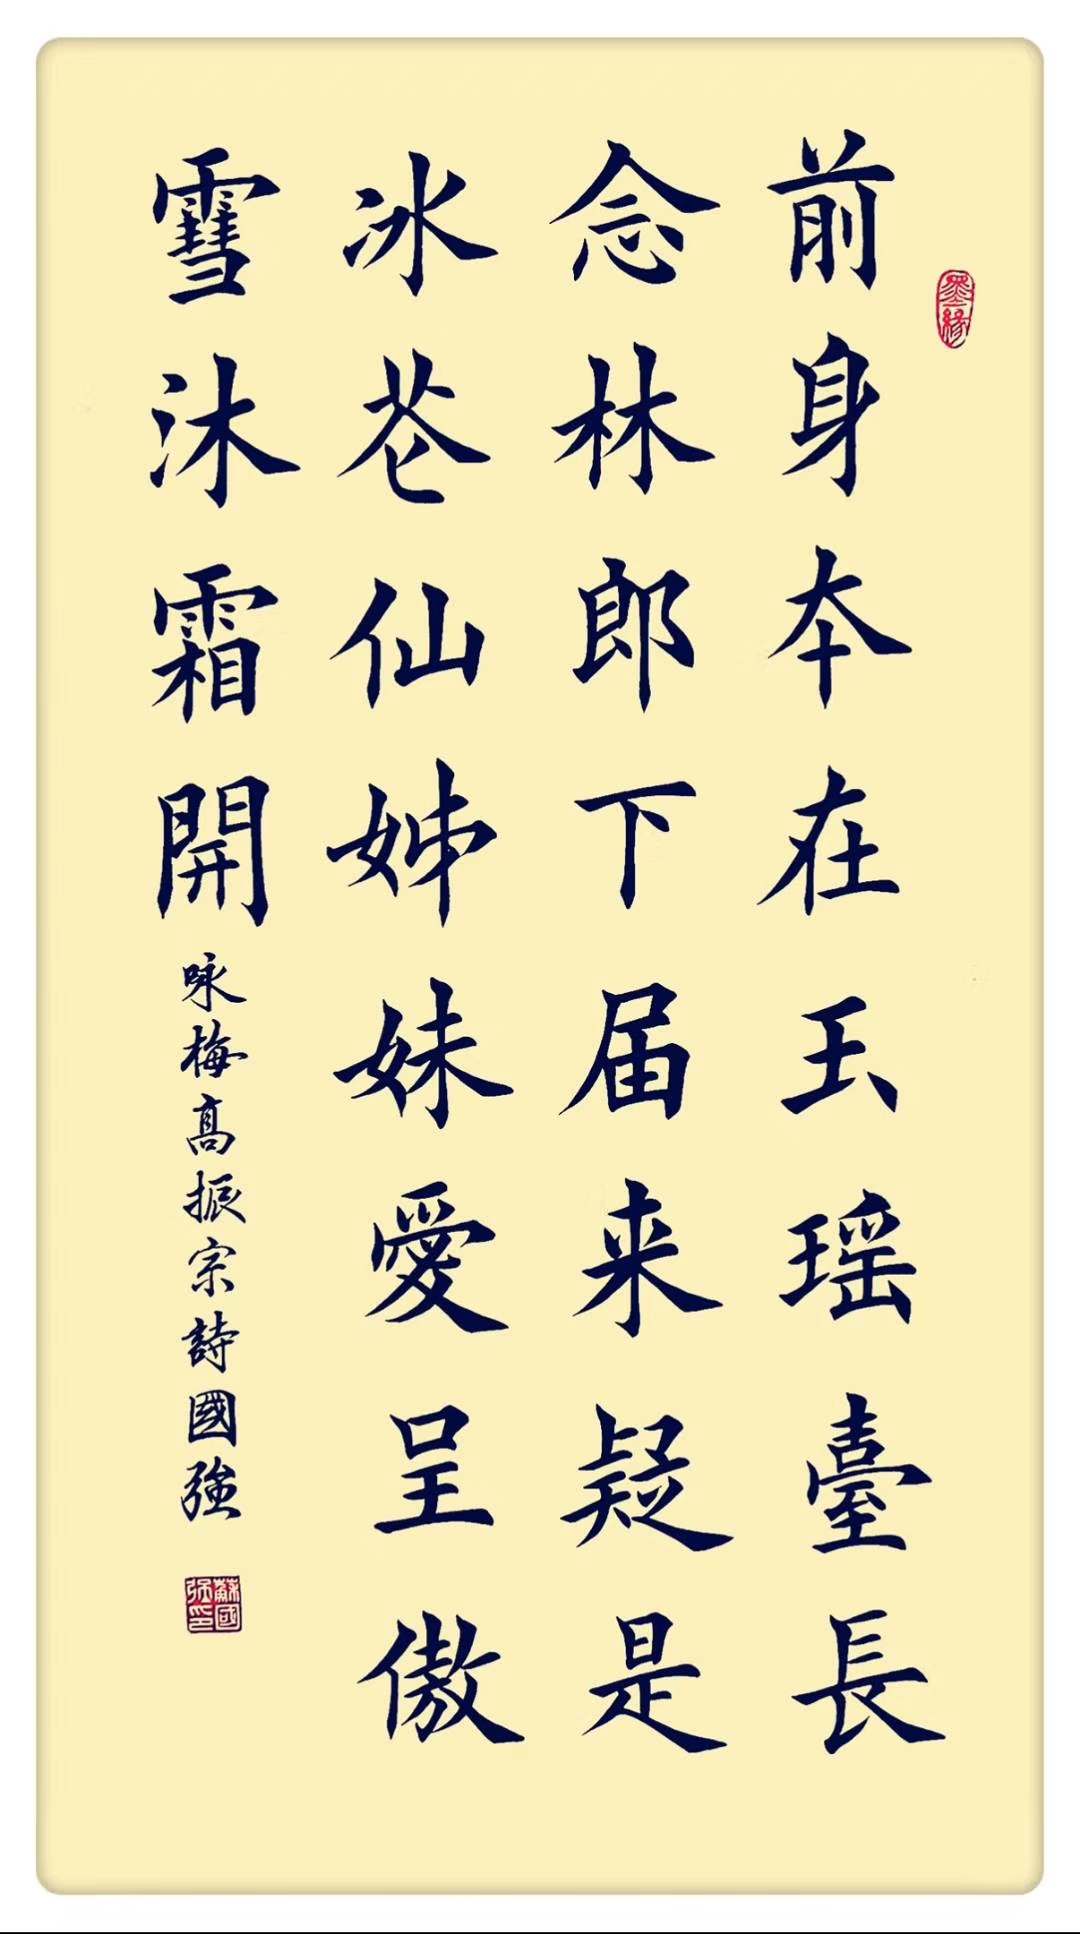 墨緣
前身本在玉瑶臺長
念林郎下届来疑是
冰花仙姊妹愛呈傲
雪沐霜開
咏梅高振宗詩國強
蘇國強印